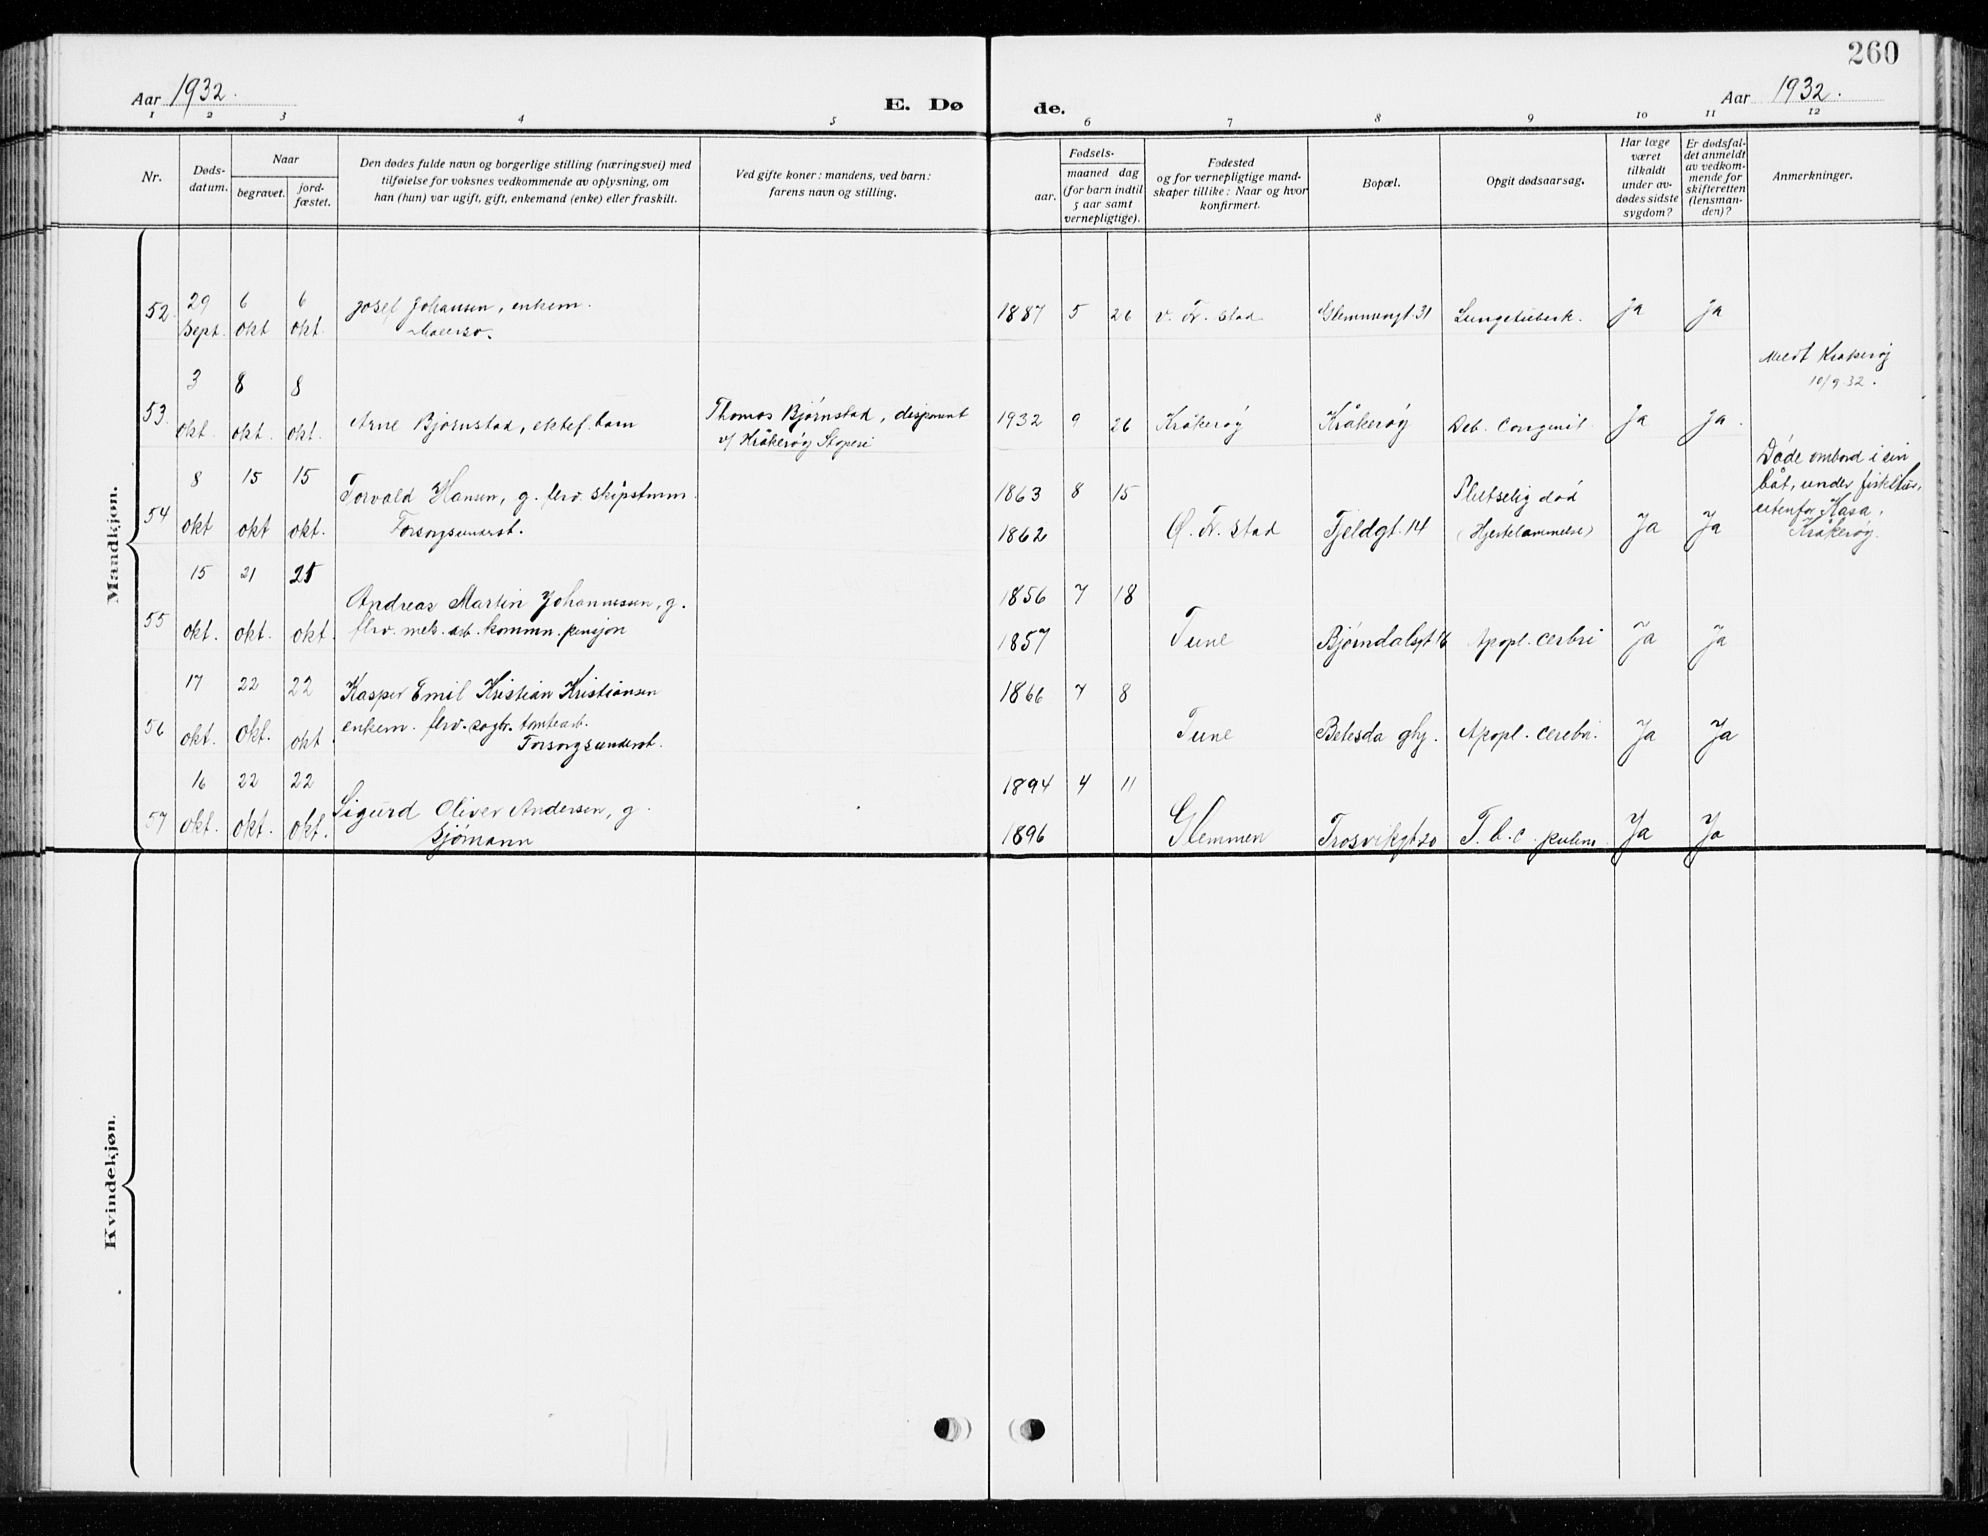 260
Aar 1932. E. Dø de. Aar 1932.
1 2 3 4 5 6 7 8 9 10 11 12
Nr.
Døds-
datum.
Naar
begravet.
jord-
fæstet.
Den dødes fulde navn og borgerlige stilling (næringsvei) med
tilføielse for voksnes vedkommende av oplysning, om
han (hun) var ugift, gift, enkemand (enke) eller fraskilt.
Ved gifte koner: mandens, ved barn:
farens navn og stilling.
Fødsels-
aar.
maaned dag
(for barn indtil
5 aar samt
vernepligtige).
Fødested
og for vernepligtige mand-
skaper tillike: Naar og hvor
konfirmert.
Bopæl.
Opgit dødsaarsag.
Har læge
været
tilkaldt
under av-
dødes sidste
sygdom?
Er dødsfal-
det anmeldt
av vedkom-
mende for
skifteretten
(lensman-
den)?
Anmerkninger.
Mandkjøn.
52. 29 Sept. 6 okt 6 okt. Josef Johansen, enkem.
1887 5 26 v. Fr. stad Glemmengt. 31 Lungetuberk. Ja Ja
53. 3 okt. 8 okt. 8 okt. Arne Bjørnstad, ektef. barn
Thomas Bjørnstad, disponent
v/ Kråkerøy Støperi
1932 9 26 Kråkerøy Kråkerøy Deb. congenit. Ja Ja.
Meldt Kråkerøy
10/9 32.
54 8 okt 15 okt 15 okt. Torvald Hansen, g. fhv. skipstømm.
Forsorgsunderst.
1863 8 15
1862 Ø. Fr. stad Fjeldgt. 14
Plutselig død
(Hjertelammelse) Ja Ja
Døde ombord i sin
båt, under fisketur,
utenfor Kasa,
Kråkerøy.
55 15 okt. 21 okt. 25 okt. Andreas Martin Johannessen, g.
fhv. mek. arb. kommn. pensjon
1856 7 18
1857 Tune Bjørndalsgt 16 Apopl. cerbri Ja Ja
56 17 okt. 22 okt. 22 okt Kasper Emil Kristian Kristiansen
enkem. fhv. sagbr. tomtearb.
Forsorgsunderst.
1866 7 8
Tune Betesda ghj. Apopl. cerebri. Ja Ja
57 16 okt. 22 okt. 22 okt. Sigurd Oliver Andersen, g.
Sjømann
1894 4 11
1896 Glemmen Trosvikgt 20 T. b. c. pulm. Ja Ja
Kvindekjøn.